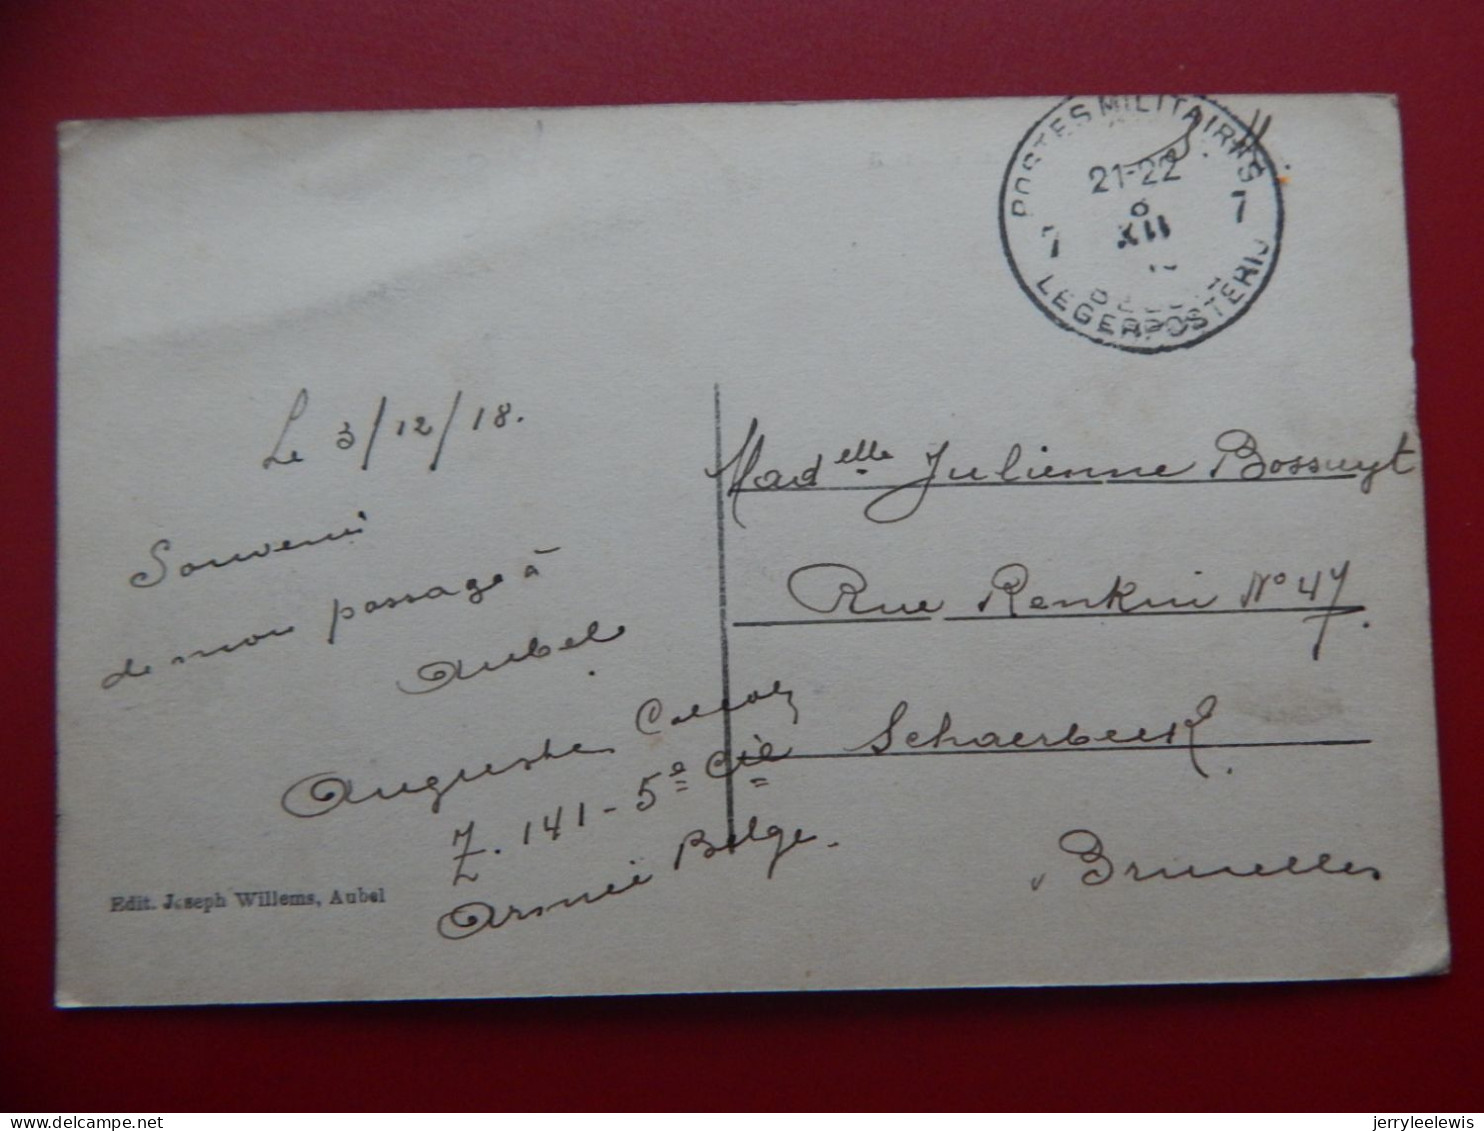 POSTES MILITAIRES
21-22
XII
7 7
LEGERPOSTERIJ
Le 3/12/18.
Souvenir
de mon passage à
Aubel
Auguste
Z. 141 - 5e Cie
Armée Belge.
Edit. Joseph Willems, Aubel
Madelle Julienne Bossuyt
Rue Renkin No 47.
Schaerbeek.
Bruxelles
delcampe.net
jerryleelewis